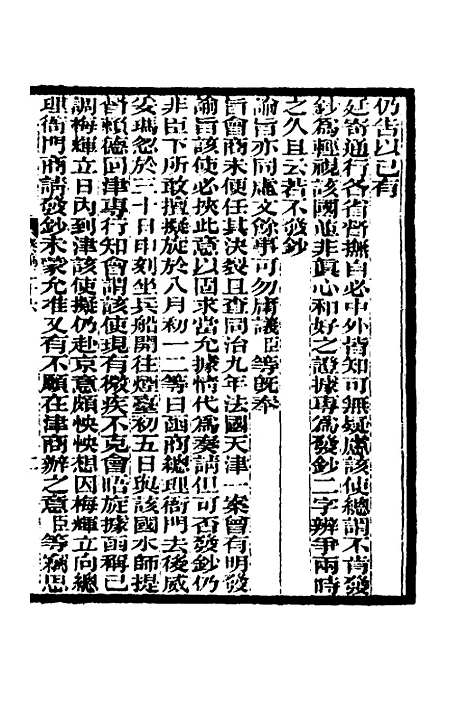 仍告以已有
廷寄通行各省督撫自必中外皆知可無疑慮該使總謂不肯發
鈔為輕視該國並非真心和好之證據專為發鈔二字辨爭兩時
之久且云若不發鈔
諭旨亦同虛文餘事可勿庸議臣等旣奉
旨會商未便任其決裂且查同治九年法國天津一案曾有明發
諭旨該使必挾此意以固求當允據情代為奏請但可否發鈔仍
非臣下所敢擅擬旋於八月初一二等日函商總理衙門去後威
妥瑪忽於三十日申刻坐兵船開往煙臺初五日與該國水師提
督賴德回津專行知會謂該使現有微疾不克會晤旋據函稱已
調梅輝立日內到津該使擬仍赴京意頗怏怏想因梅輝立向總
理衙門商請發鈔未蒙允准又有不願在津商辦之意臣等竊思